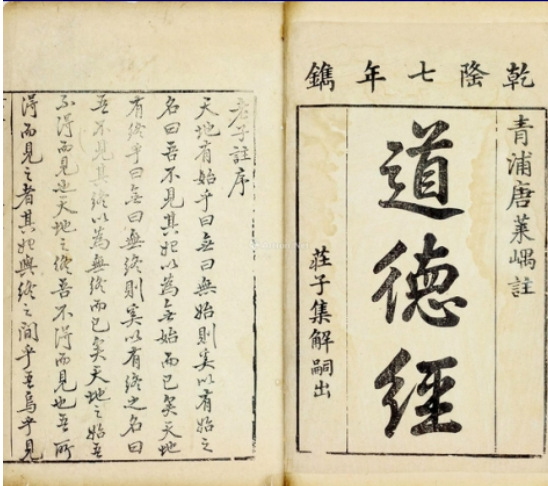 乾隆七年鐫
青浦唐葉嵎註
道德經
莊子集解嗣出
老子註序
天地有始乎曰無曰無始則奚以有始之
名曰吾不見其始以為無始而已矣天地
有終乎曰無曰無終則奚以有終之名曰
吾不見其終以為無終而已矣天地之始吾
不得而見也天地之終吾不得而見也吾所
得而見之者其始與終之間乎吾烏乎見